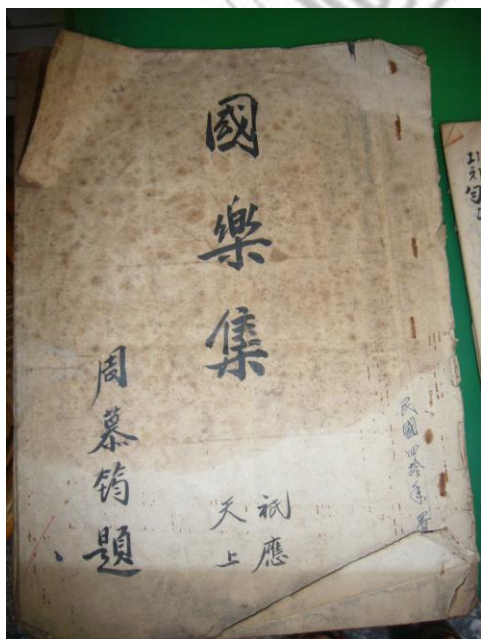 民國四拾年置
國樂集
祇應
天上
周慕筠題